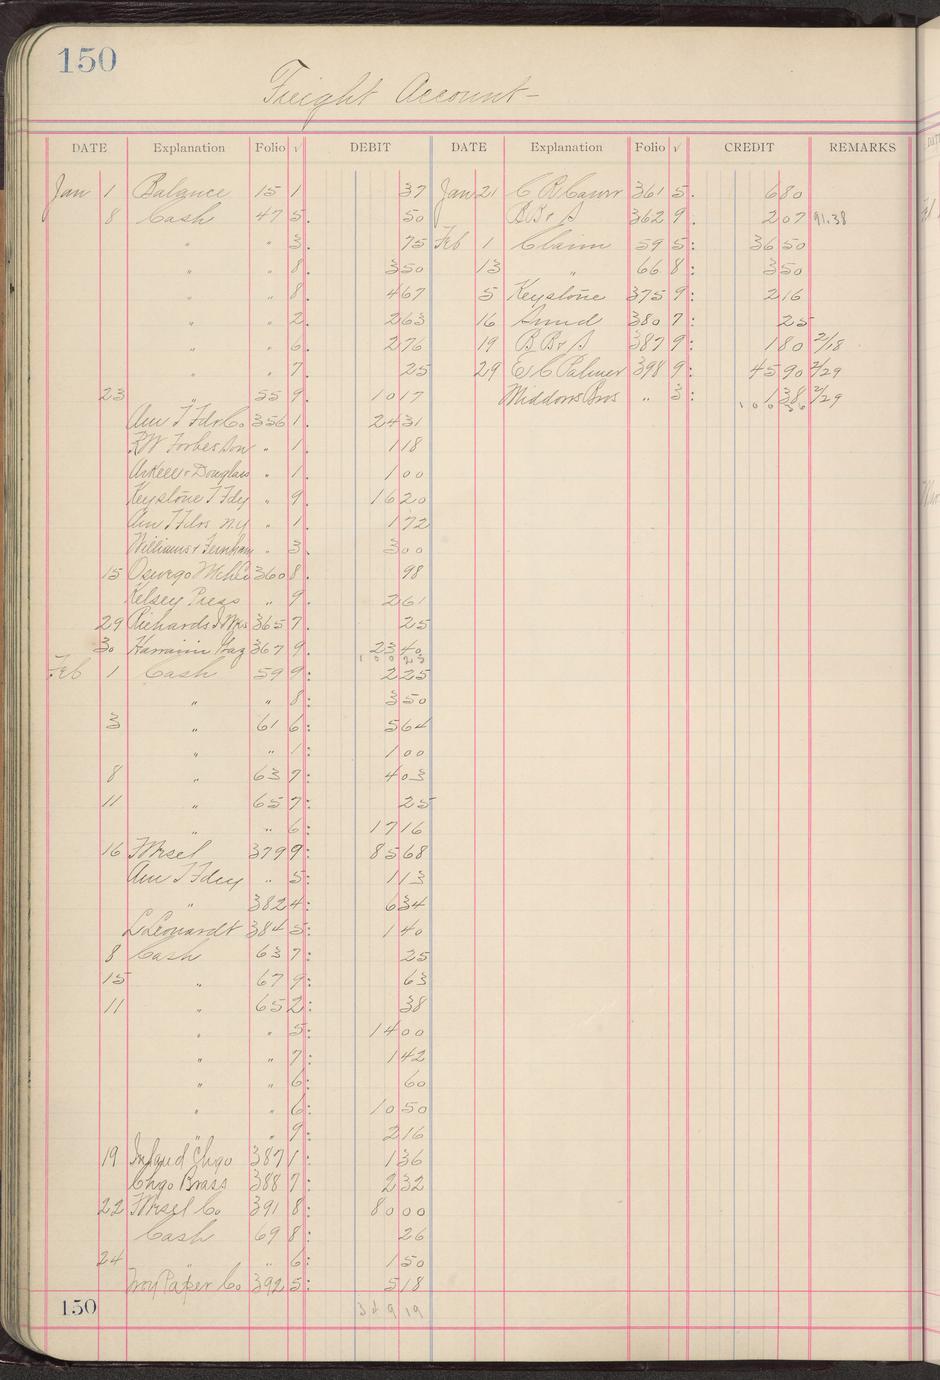 150
Freight Account-
DATE Explanation Folio √ DEBIT DATE Explanation Folio √ CREDIT REMARKS
Jan 1 Balance 15 1 37 Jan 21 C R 361 5. 6 80
8 Cash 47 5. 50 B B & S 362 9. 2 07 91.38
" " 3. 75 Feb 1 Claim 59 5: 36 50
" " 8. 3 50 13 " 66 8: 3 50
" " 8. 4 67 5 Keystone 375 9: 2 16
" " 2. 2 63 16 380 7: 25
" " 6. 2 76 19 B B & S 387 9: 1 80 2/18
" " 7. 25 29 E C Palmer 398 9: 45 90 2/29
23 " 55 9. 10 17 Bros " 3: 1 38 2/29
100 36
Am T Fdrs Co. 356 1. 24 31
R W Forbes Son " 1. 1 18
Arkell & Douglass " 1. 1 00
Keystone T Fdy " 9. 16 20
Am T Fdrs NY " 1. 1 72
Williams & " 3. 3 00
15 Oswego Mch Co 360 8. 98
Kelsey Press " 9. 2 61
29 Richards I Wks 365 7. 25
30 367 9. 23 40
100 23
Feb 1 Cash 59 9: 2 25
" " 8: 3 50
3 " 61 6: 5 64
" " 1: 1 00
8 " 63 7: 4 03
11 " 65 7: 25
" " 6: 17 16
16 F Wesel 379 9: 85 68
Am T Fdry " 5: 1 13
" 382 4: 6 34
L Leonardt 384 5: 1 40
8 Cash 63 7: 25
15 " 67 9: 63
11 " 65 2: 38
" " 5: 14 00
" " 7: 1 42
" " 6: 60
" " 6: 10 50
" " 9: 2 16
19 Chgo 387 1: 1 36
Chgo Brass 388 7: 2 32
22 F Wesel Co 391 8: 80 00
Cash 69 8: 26
24 " " 6: 1 50
Troy Paper Co 392 5: 5 18
150 349 19